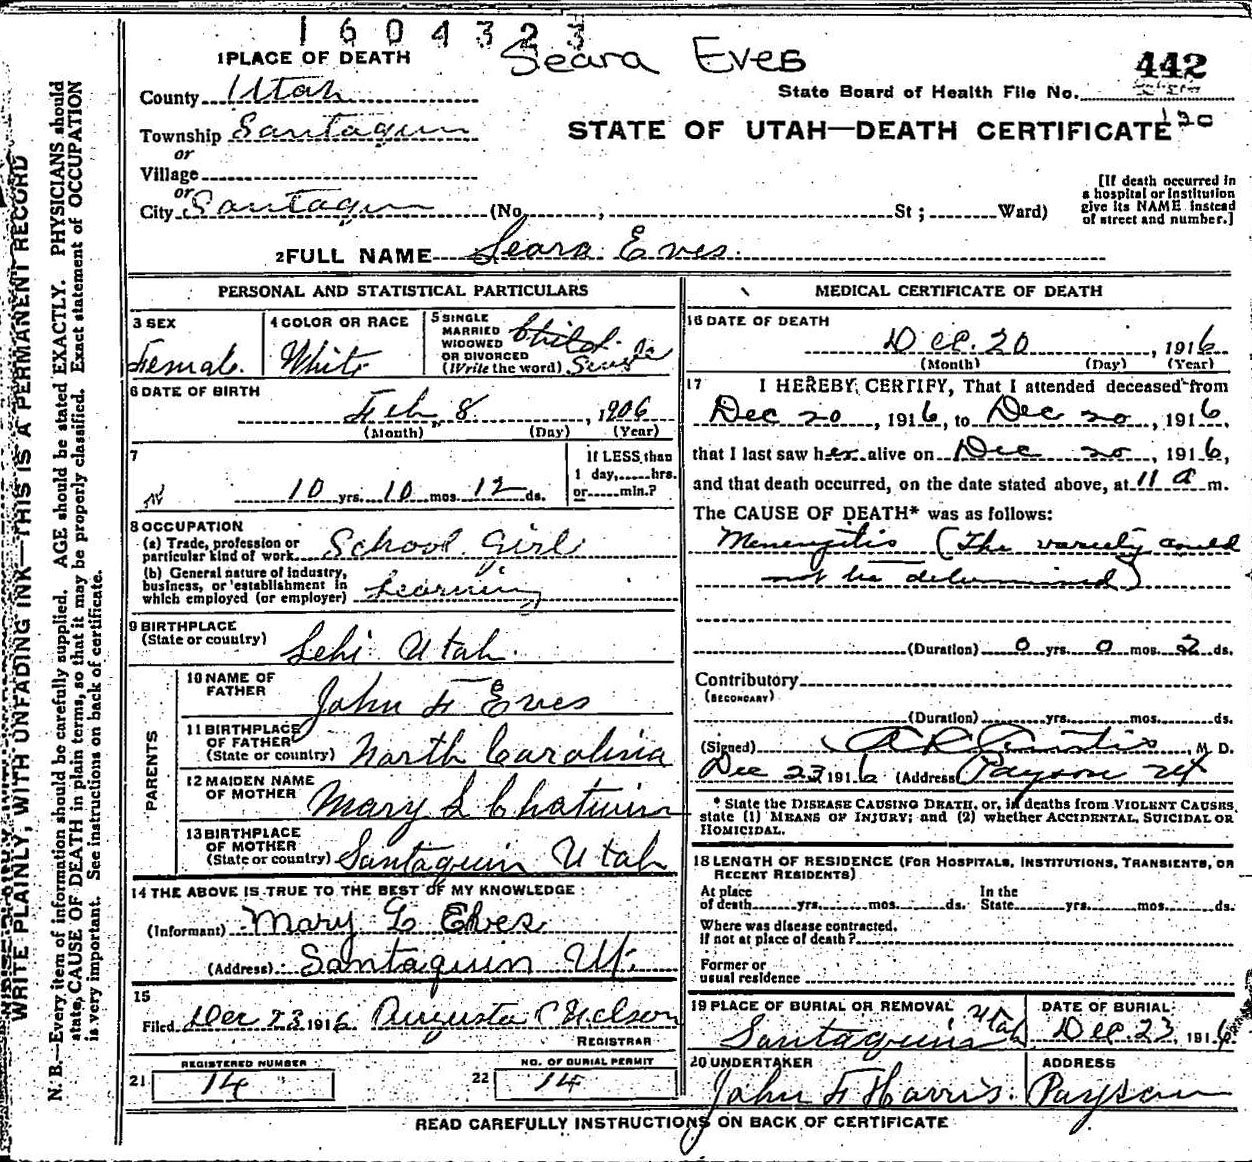 1604323
Seara Eves
442
State Board of Health File No.
130
1 PLACE OF DEATH
County Utah
Township Santaquin
or
Village
or
City Santaquin (No. , St ; Ward)
STATE OF UTAH—DEATH CERTIFICATE
[If death occurred in
a hospital or institution
give its NAME instead
of street and number.]
2 FULL NAME Seara Eves.
PERSONAL AND STATISTICAL PARTICULARS
3 SEX
Female.
4 COLOR OR RACE
White
5 SINGLE
MARRIED
WIDOWED
OR DIVORCED
(Write the word)
Child.
Single
6 DATE OF BIRTH
Feb 8, 1906
(Month) (Day) (Year)
7
10 yrs. 10 mos. 12 ds.
If LESS than
1 day, hrs.
or min.?
8 OCCUPATION
(a) Trade, profession or
particular kind of work School Girl
(b) General nature of industry,
business, or establishment in
which employed (or employer) Learning
9 BIRTHPLACE
(State or country) Lehi Utah.
PARENTS
10 NAME OF
FATHER John F Eves
11 BIRTHPLACE
OF FATHER
(State or country) North Carolina
12 MAIDEN NAME
OF MOTHER Mary L Chatwin
13 BIRTHPLACE
OF MOTHER
(State or country) Santaquin Utah
14 THE ABOVE IS TRUE TO THE BEST OF MY KNOWLEDGE:
(Informant) Mary L Eves
(Address) Santaquin Ut.
15
Filed Dec 23 1916 Augusta C Nelson
REGISTRAR
REGISTERED NUMBER
21 14
NO. OF BURIAL PERMIT
22 14
MEDICAL CERTIFICATE OF DEATH
16 DATE OF DEATH
Dec. 20, 1916
(Month) (Day) (Year)
17 I HEREBY CERTIFY, That I attended deceased from
Dec 20, 1916, to Dec 20, 1916,
that I last saw her alive on Dec 20, 1916,
and that death occurred, on the date stated above, at 11 a m.
The CAUSE OF DEATH* was as follows:
Menengitis (The variety could
not be determined)
(Duration) 0 yrs. 0 mos. 2 ds.
Contributory
(SECONDARY)
(Duration) yrs. mos. ds.
(Signed) M. D.
Dec 23 1916 (Address) Payson Ut
* State the DISEASE CAUSING DEATH, or, in deaths from VIOLENT CAUSES,
state (1) MEANS OF INJURY; and (2) whether ACCIDENTAL, SUICIDAL OR
HOMICIDAL.
18 LENGTH OF RESIDENCE (FOR HOSPITALS, INSTITUTIONS, TRANSIENTS, OR
RECENT RESIDENTS)
At place
of death yrs. mos. ds.
In the
State yrs. mos. ds.
Where was disease contracted,
if not at place of death?
Former or
usual residence
19 PLACE OF BURIAL OR REMOVAL
Santaquin Utah
DATE OF BURIAL
Dec. 23, 1916
20 UNDERTAKER
John F Harris.
ADDRESS
Payson
READ CAREFULLY INSTRUCTIONS ON BACK OF CERTIFICATE
WRITE PLAINLY, WITH UNFADING INK—THIS IS A PERMANENT RECORD
N. B.—Every item of information should be carefully supplied. AGE should be stated EXACTLY. PHYSICIANS should
state, CAUSE OF DEATH in plain terms, so that it may be properly classified. Exact statement of OCCUPATION
is very important. See instructions on back of certificate.